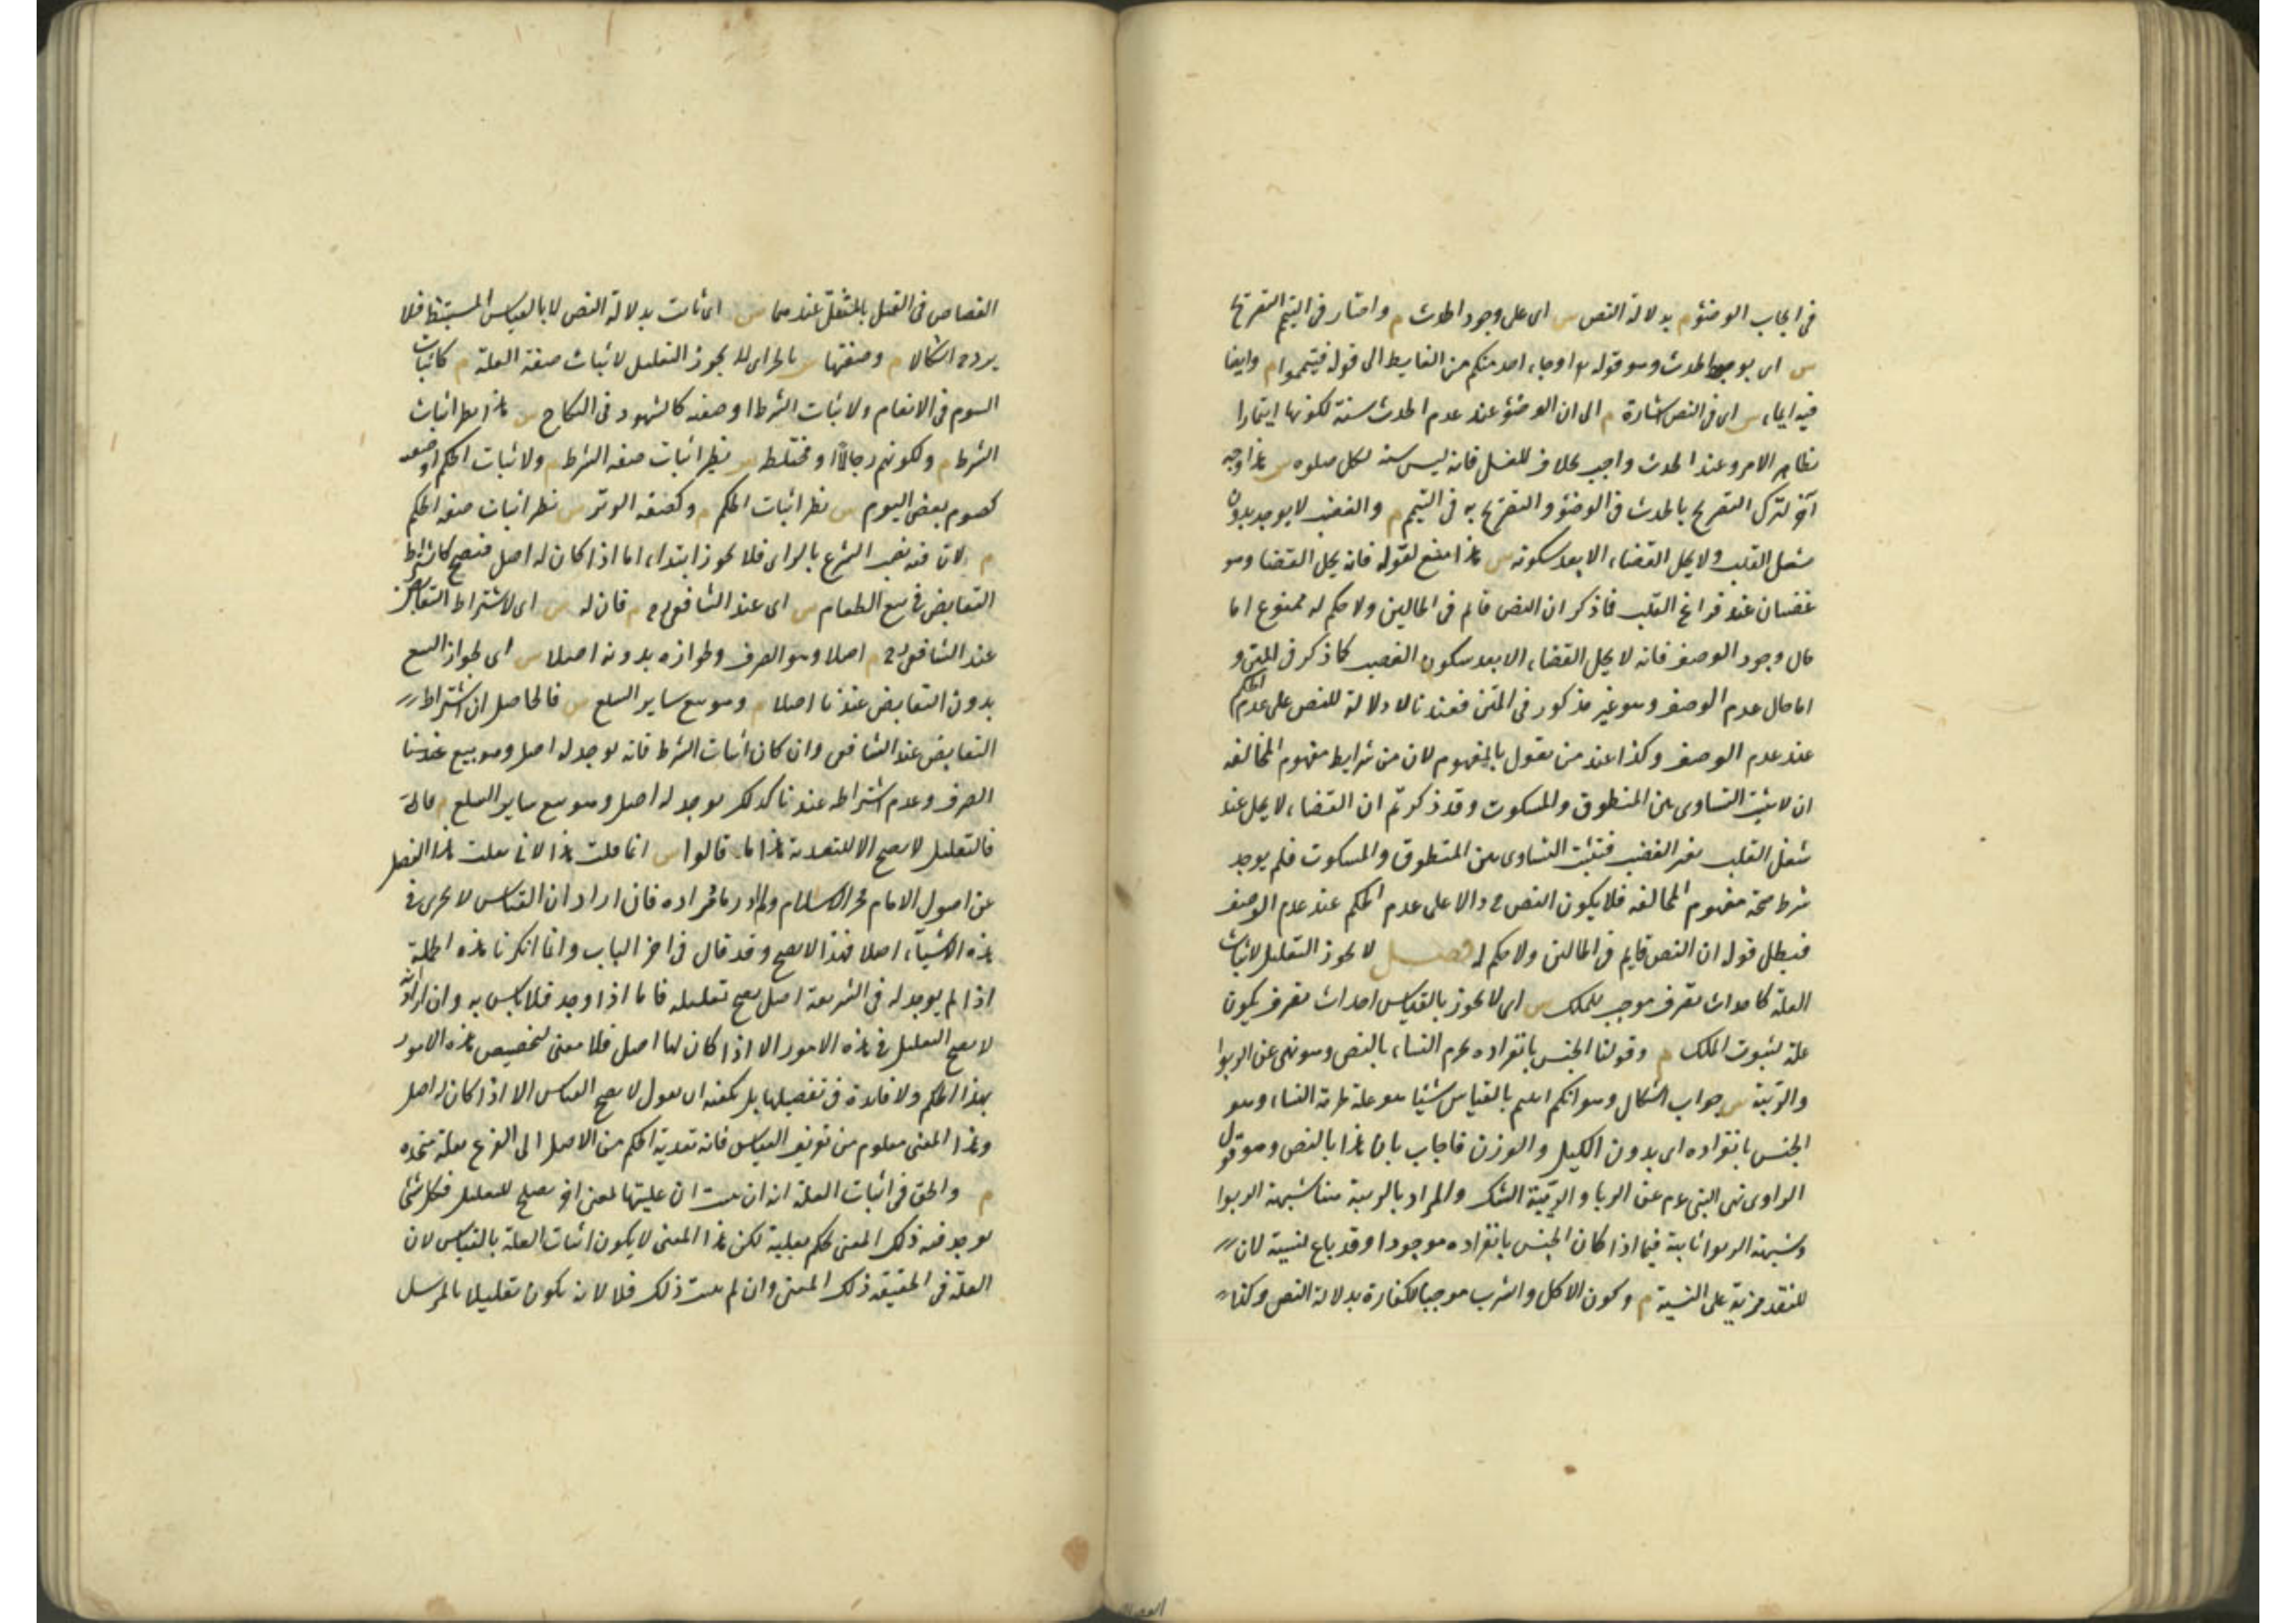 في ايجاب الوضوء م بدلالة النص س اى على وجود الحدث م واختار في التيمم التصريح
س اى بوجود الحدث وهو قوله تع اوجاء احد منكم من الغايط الى قوله فتيمموا م وايضا
فيه ايماء س اى في النص اشارة م الى ان الوضوء عند عدم الحدث سنة لكونها ايتمارا
بظاهر الامر وعند الحدث واجب بخلاف الغسل فانه ليس سنة لكل صلوة س هذا وجه
آخر لترك التصريح بالحدث في الوضوء والتصريح به في التيمم م والغضب لا يوجد بدون
شغل القلب ولا يحل القضاء الا بعد سكونه س هذا منع لقوله فانه يحل القضا وهو
غضبان عند فراغ القلب فاذكر ان النص قايم في الحالين ولا حكم له ممنوع اما
حال وجود الوصف فانه لا يحل القضاء الا بعد سكون الغضب كما ذكر في المتن و
اما حال عدم الوصف وهو غير مذكور في المتن فعندنا لا دلالة للنص على عدم الحكم
عند عدم الوصف وكذا عند من يقول بالمفهوم لان من شرايط مفهوم المخالفه
ان لا يثبت التساوى بين المنطوق والمسكوت وقد ذكر ثم ان القضاء لا يحل عند
شغل القلب بغير الغضب فثبت التساوى بين المنطوق والمسكوت فلم يوجد
شرط صحة مفهوم المخالفه فلا يكون النص ح دالا على عدم الحكم عند عدم الوصف
فبطل قوله ان النص قايم في الحالين ولا حكم له فصل لا يجوز التعليل لاثبات
العلة كاحداث تصرف موجب للملك س اى لا يجوز بالقياس احداث تصرف يكون
علة لثبوت الملك م وقولنا الجنس بانفراده يحرم النساء بالنص وهو نهى عن الربوا
والريبة س جواب اشكال وهو انكم اثبتم بالقياس شيئا هو علة لحرمة النساء وهو
الجنس بانفراده اى بدون الكيل والوزن فاجاب بان هذا بالنص وهو قول
الراوى نهى النبي عم عن الربا والريبة الشك والمراد بالريبة هنا شبهة الربوا
وشبهة الربوا ثابتة فيما اذا كان الجنس بانفراده موجودا وقد باع نسية لان
للنقد مزية على النسية م وكون الاكل والشرب موجبا للكفارة بدلالة النص وكذا
القصاص في القتل بالمثقل عندهما س اى ثابت بدلالة النص لا بالقياس المستنبط فلا
يرد ح اشكالا م وصفتها س بالجر اى لا يجوز التعليل لاثبات صفة العلة م كاثبات
السوم في الانعام ولاثبات الشرط او صفته كالشهود في النكاح س هذا نظير اثبات
الشرط م ولكونهم رجالا او مختلط س نظير اثبات صفة الشرط م ولاثبات الحكم او صفته
كصوم بعض اليوم س نظير اثبات الحكم م وكصفة الوتر س نظير اثبات صفة الحكم
م لان فيه نصب الشرع بالراى فلا يجوز ابتداء اما اذا كان له اصل فيصح كاشتراط
التقابض في بيع الطعام س اى عند الشافعى رح م فان له س اى لاشتراط التقابض
عند الشافعى رح م اصلا وهو الصرف ولجوازه بدونه اصلا س اى لجواز البيع
بدون التقابض عندنا اصلا م وهو بيع ساير السلع س فالحاصل ان اشتراط
التقابض عند الشافعى وان كان اثبات الشرط فانه يوجد له اصل وهو بيع
الصرف وعدم اشتراطه عندنا كذلك يوجد له اصل وهو بيع ساير السلع م
فالتعليل لا يصح الا للتعدية هذا ما قالوا س انما قلت هذا لانى نقلت هذا الفصل
عن اصول الامام فخر الاسلام ولم ادر ما مراده فان اراد ان القياس لا يجرى في
هذه الاشياء اصلا فهذا لا يصح وقد قال في آخر الباب وانما انكرنا هذه الجملة
اذا لم يوجد له في الشريعة اصل يصح تعليله فاما اذا وجد فلا باس به وان اراد انه
لا يصح التعليل في هذه الامور الا اذا كان لها اصل فلا معنى لتخصيص هذه الامور
بهذا الحكم ولا فائدة في تفصيلها بل يكفيه ان يقول لا يصح القياس الا اذا كان له اصل
وهذا المعنى معلوم من تعريف القياس فانه تعدية الحكم من الاصل الى الفرع بعلة متحده
م والحق في اثبات العلة انه ان ثبت ان عليتها لمعنى آخر يصلح للتعليل فكل شئ
يوجد فيه ذلك المعنى يحكم بعليته لكن هذا المعنى لا يكون اثبات العلة بالقياس لان
العلة في الحقيقة ذلك المعنى وان لم يثبت ذلك فلا لانه يكون تعليلا بالمرسل